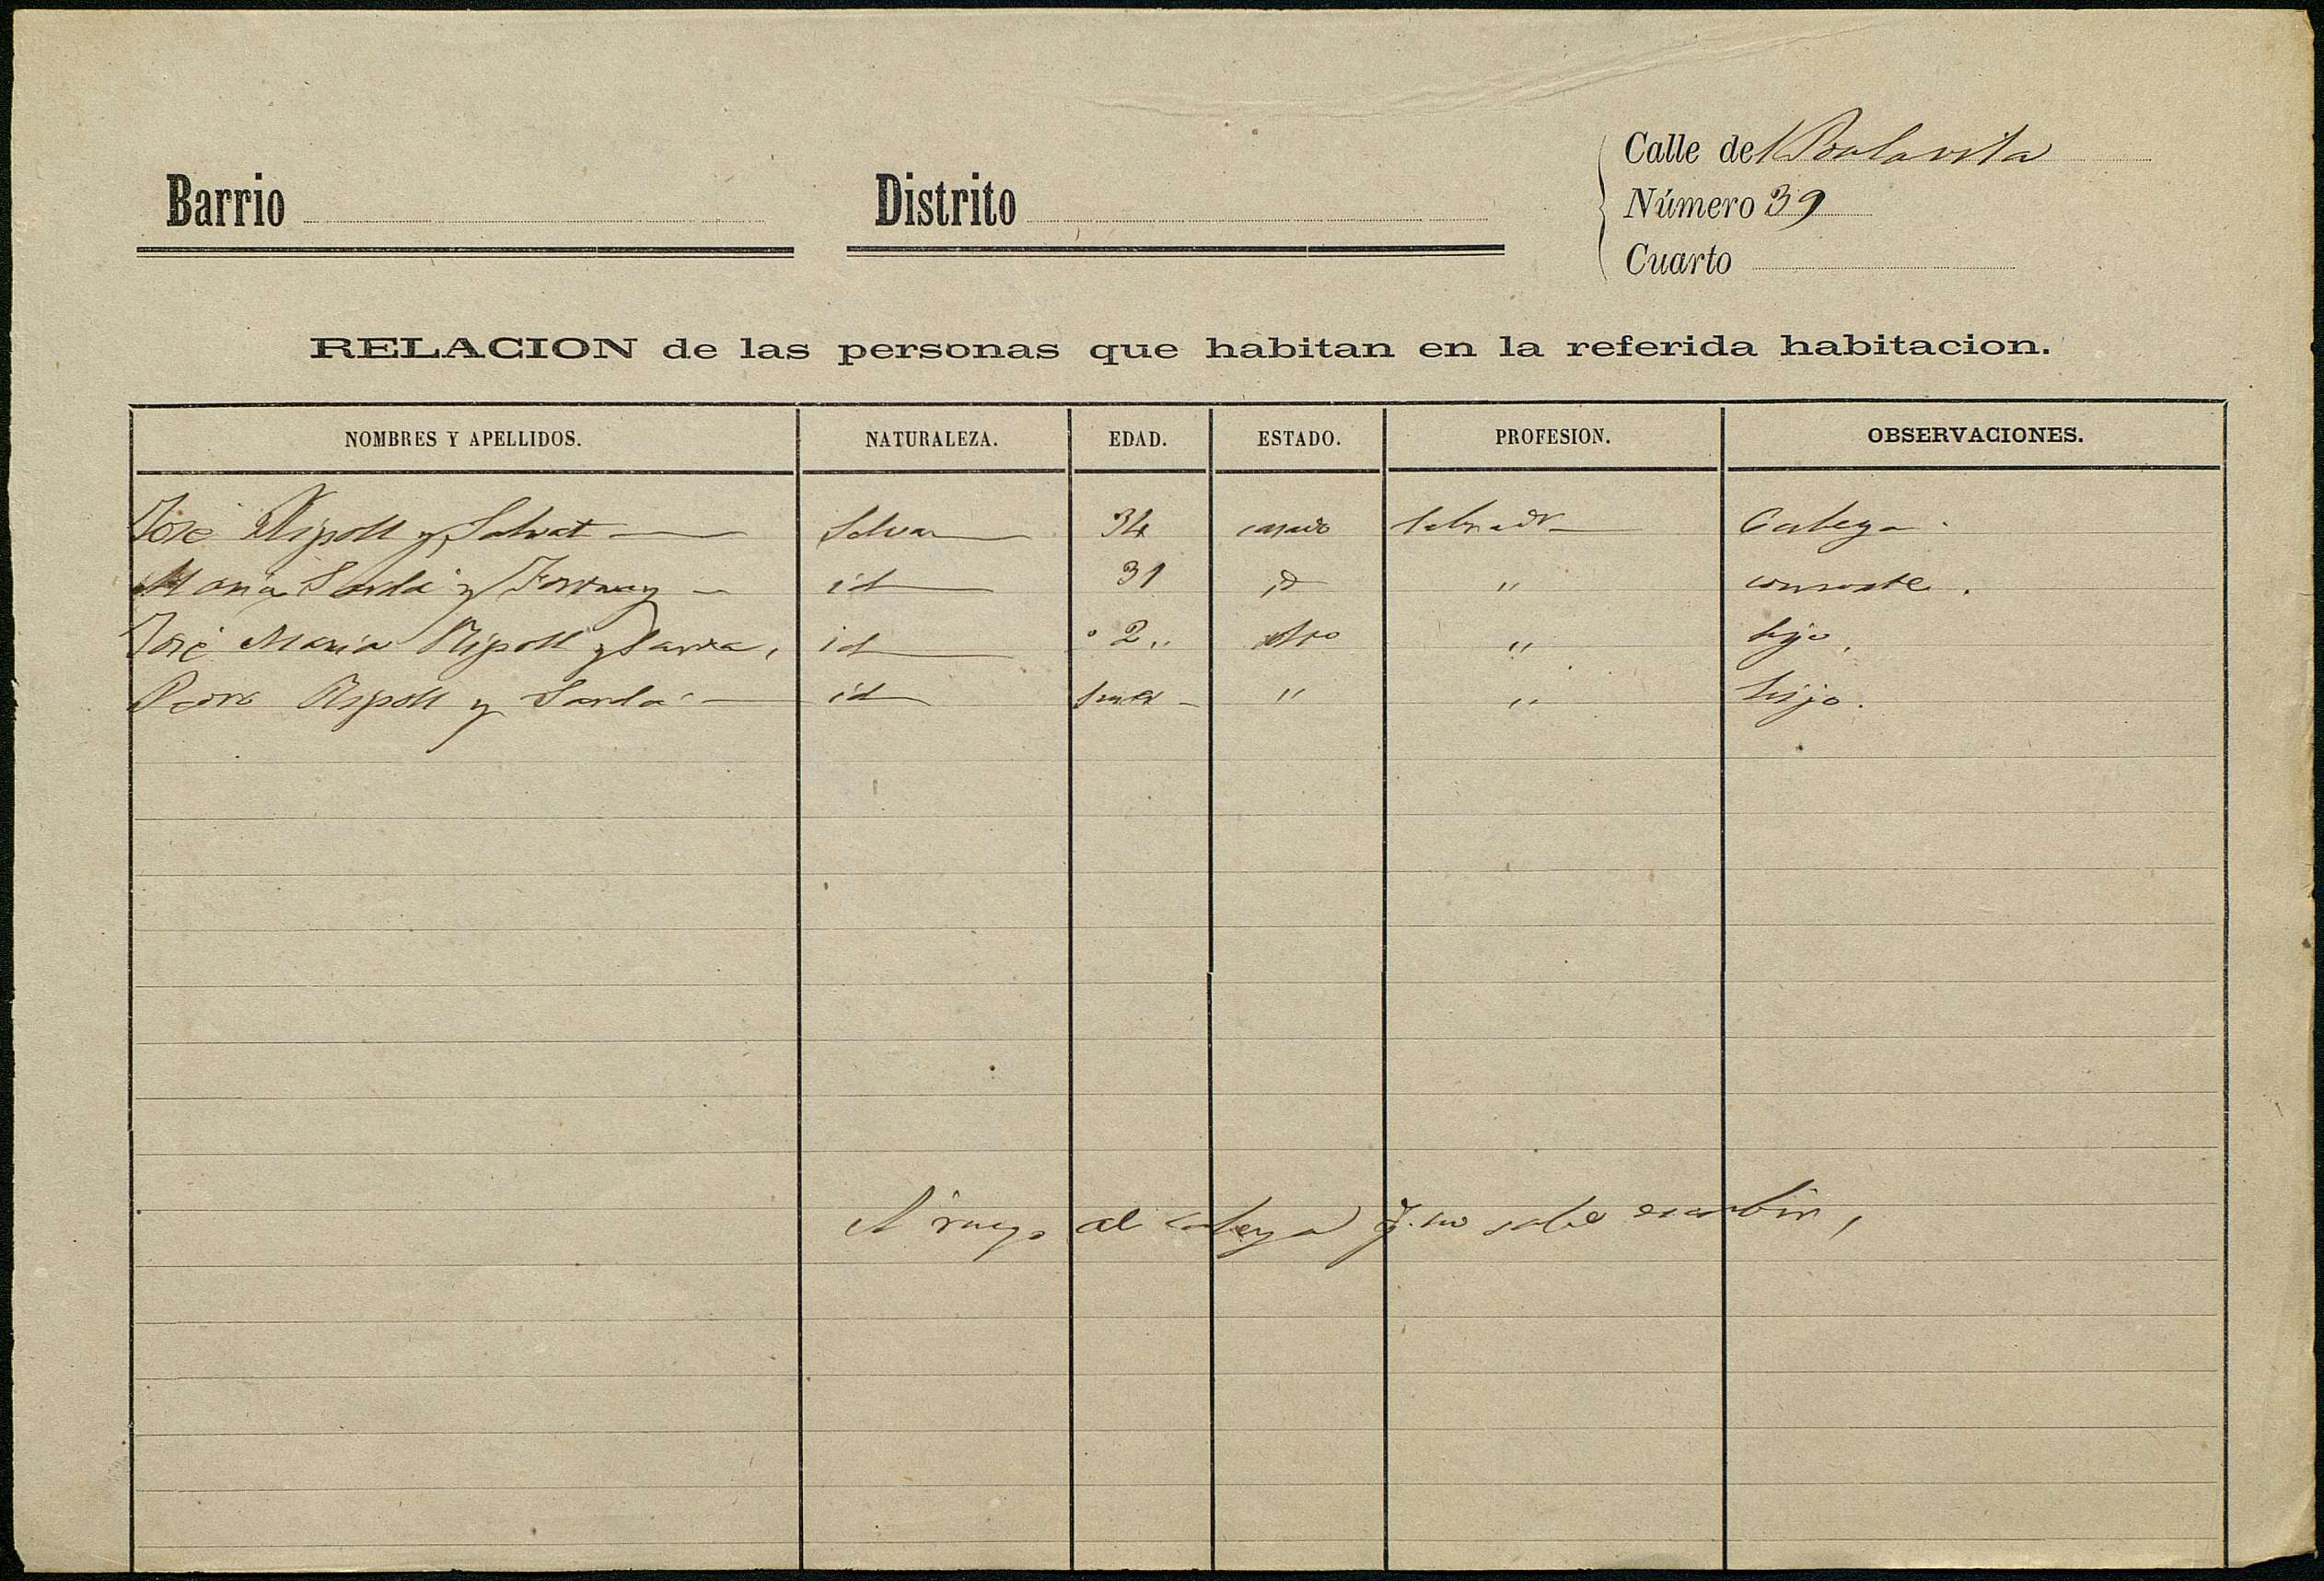 Calle del Bonlavila
Barrio Distrito Número 39
Cuarto
RELACION de las personas que habitan en la referida habitacion.
NOMBRES Y APELLIDOS. NATURALEZA. EDAD. ESTADO. PROFESION. OBSERVACIONES.
José Ripoll y Salvat Selva 34 casado labrador Cabeza.
Maria Sardá y Fortuny id 31 id " consorte.
José Maria Ripoll y Sarda, id 2 " hijo,
Pedro Ripoll y Sardá id " " hijo.
A ruego del cabeza q. no sabe escribir,